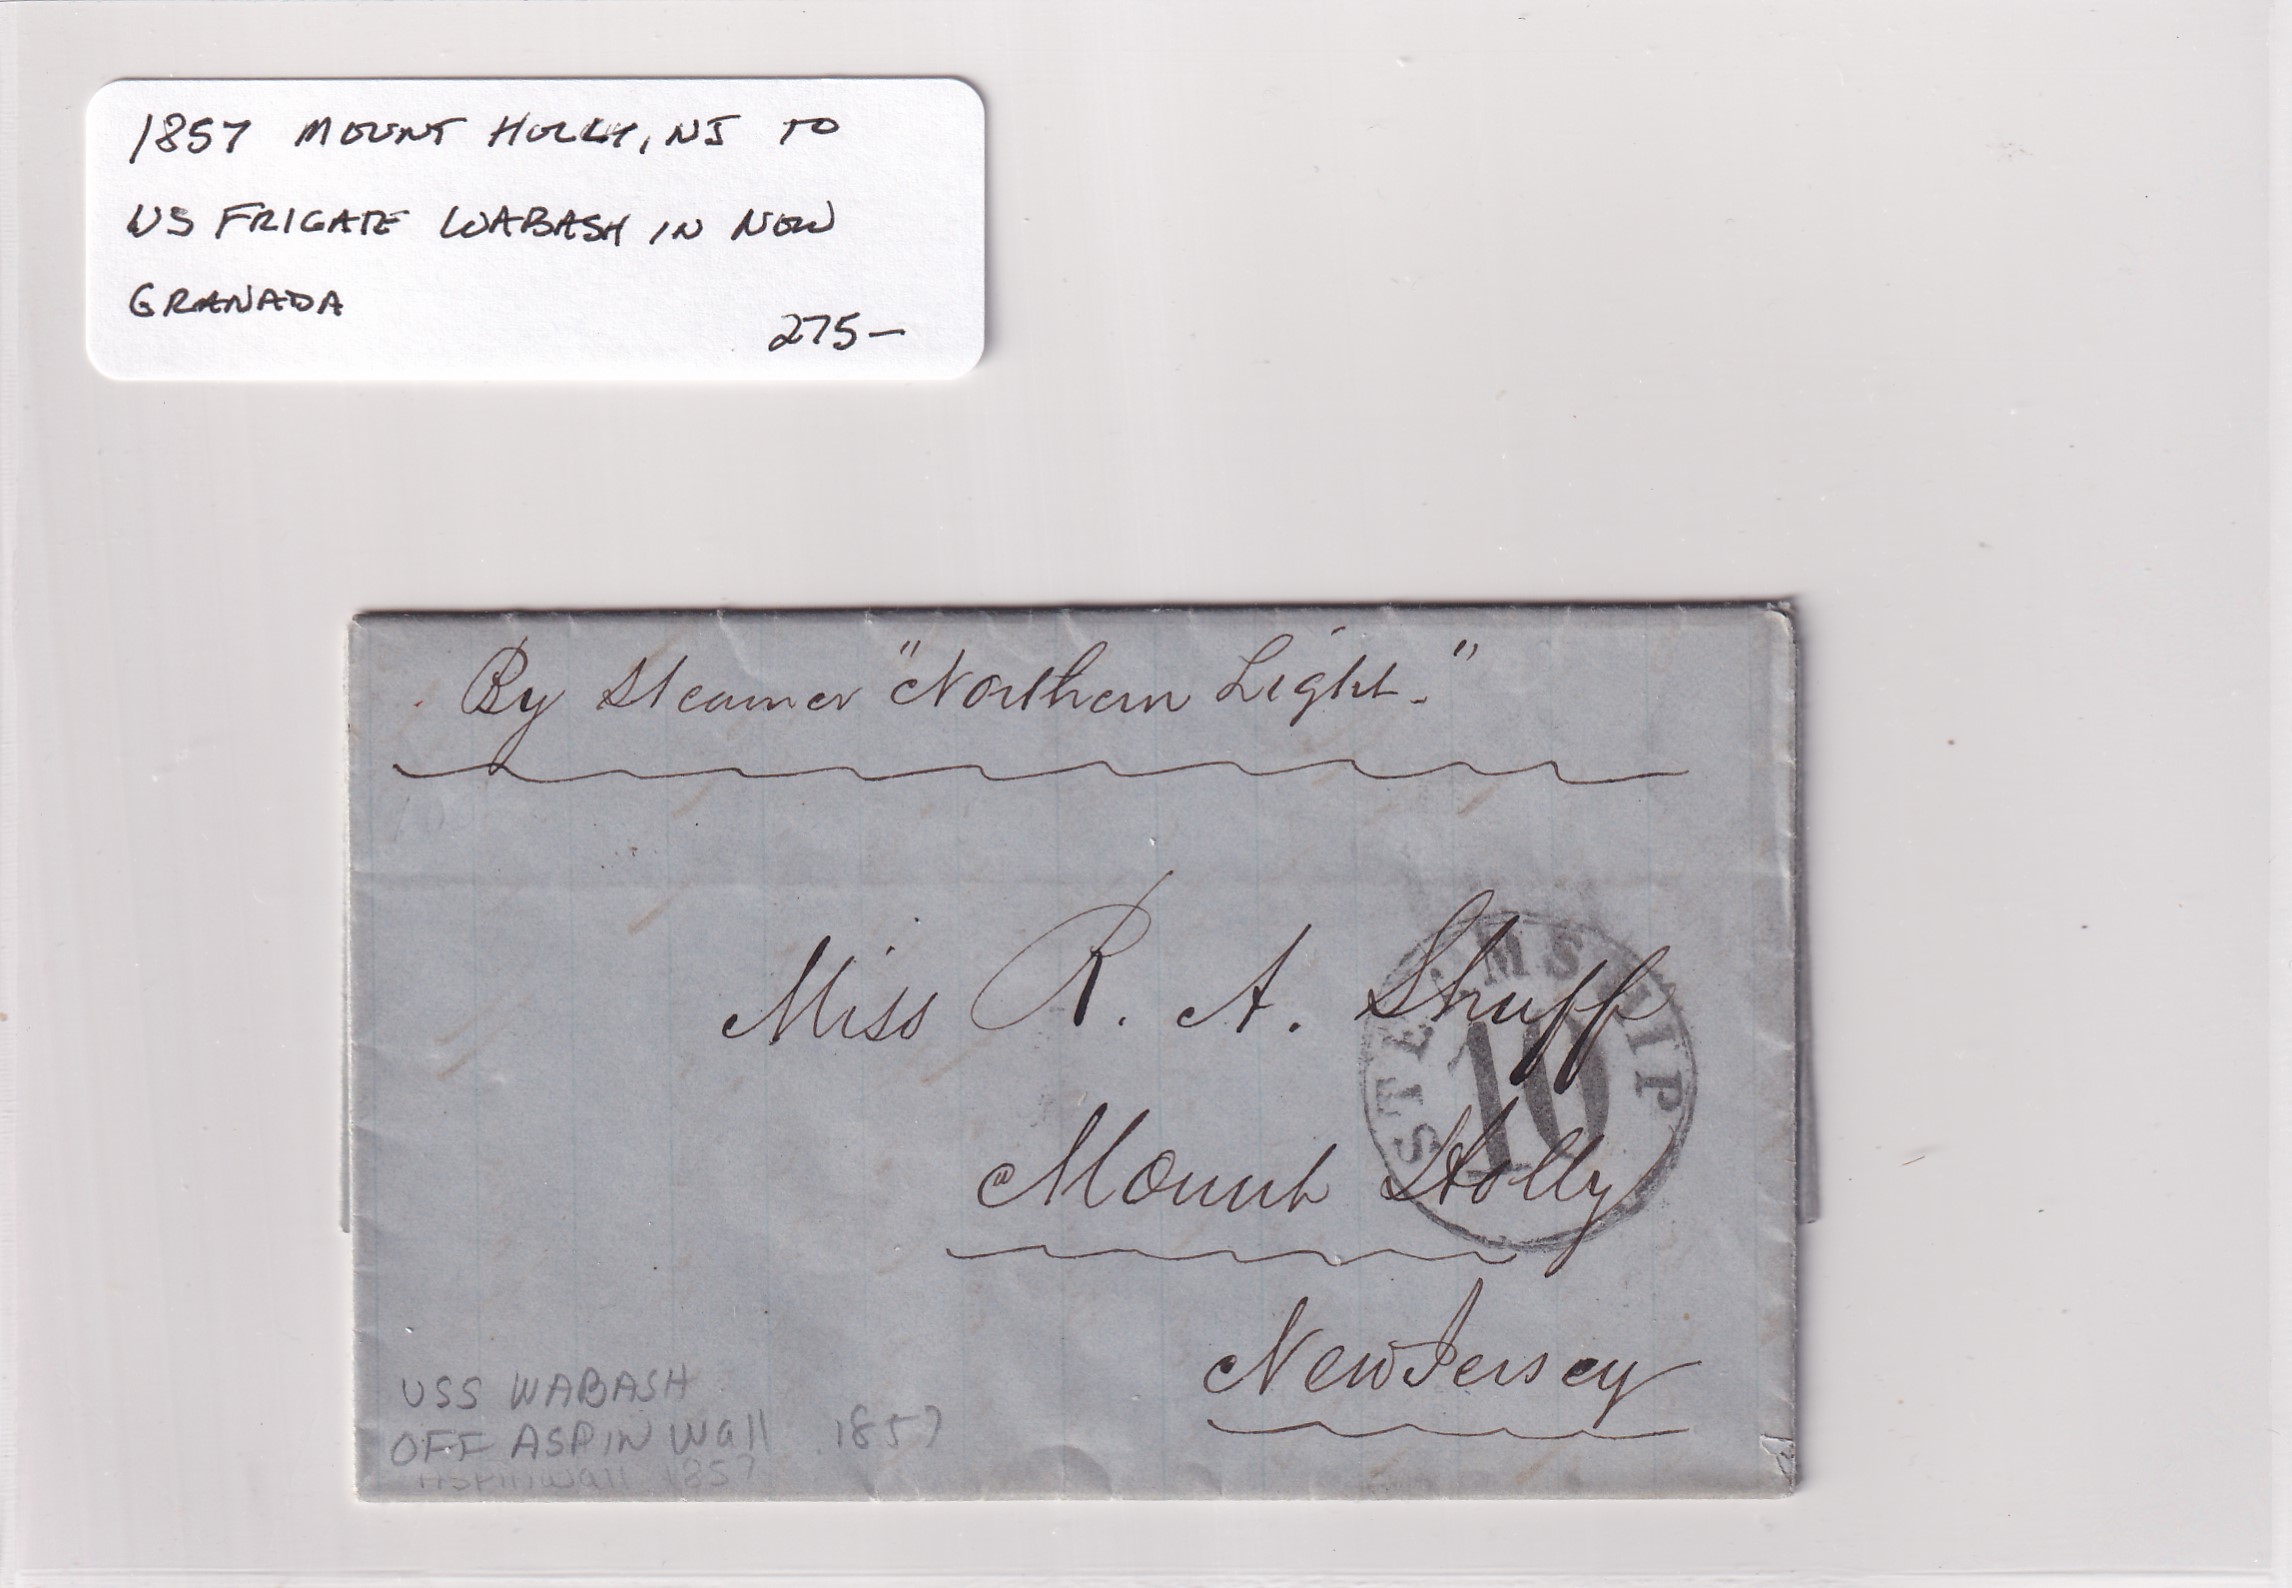 1857 MOUNT HOLLY, NJ TO
US FRIGATE WABASH IN NEW
GRANADA
275-
By Steamer "Northern Light."
Miss R. A. Shuff
STEAMSHIP
10
Mount Holly
New Jersey
USS WABASH
OFF ASPINWall 1857
Aspinwall 1857